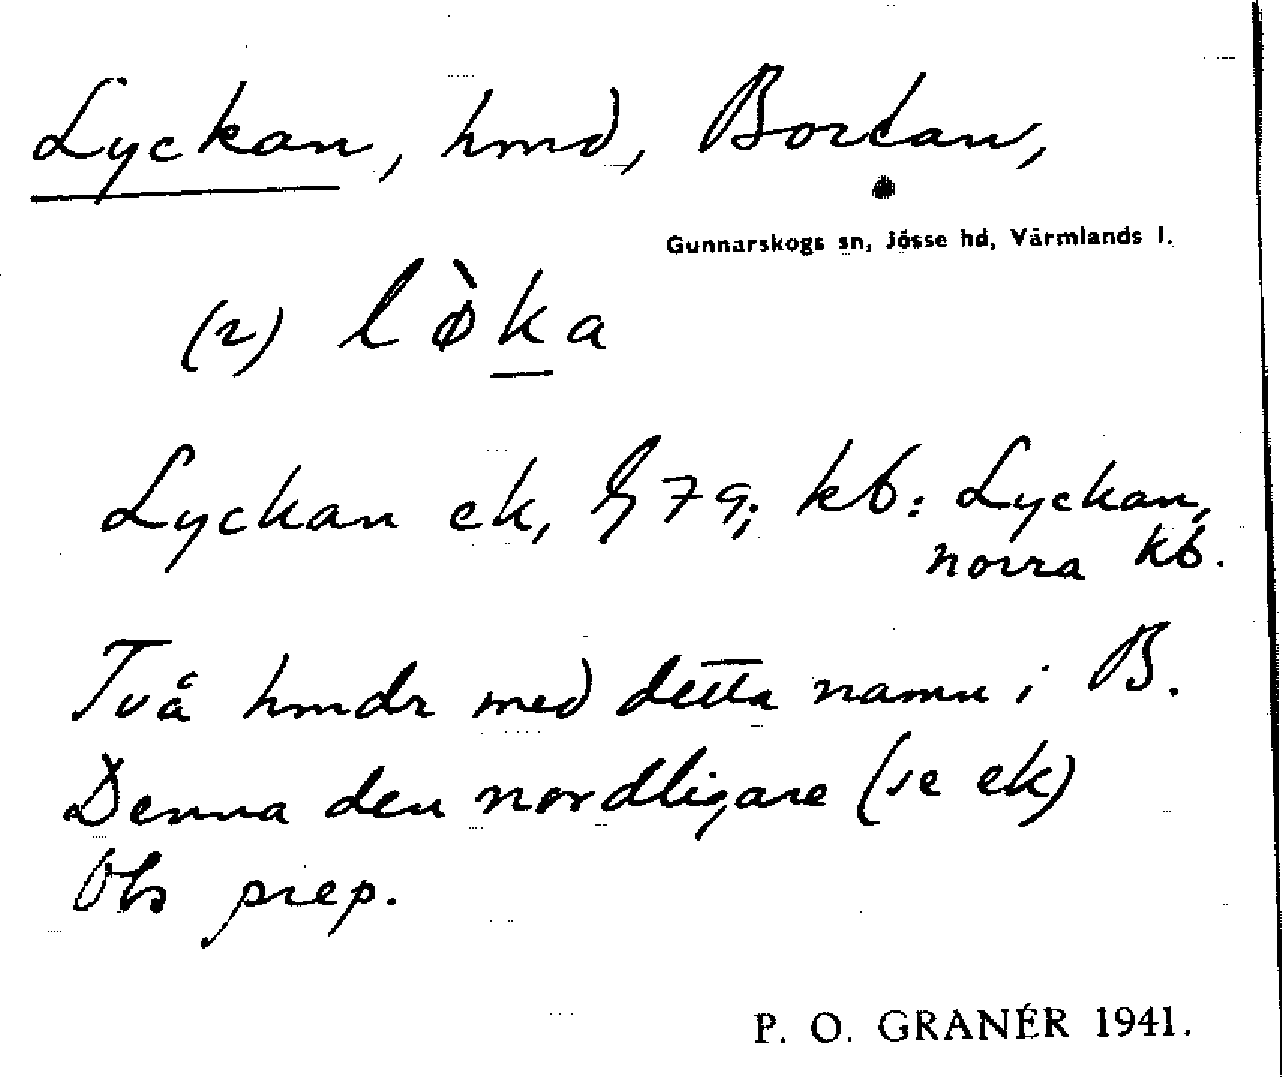 Lyckan, hmd, Bortan,
Gunnarskogs sn, Jösse hd, Värmlands l.
(2) lø̀ka
Lyckan ek, § 79; kb: Lyckan,
norra kb.
Två hmdr med detta namn i B.
Denna den nordligare (se ek)
Obs prep.
P. O. GRANÉR 1941.